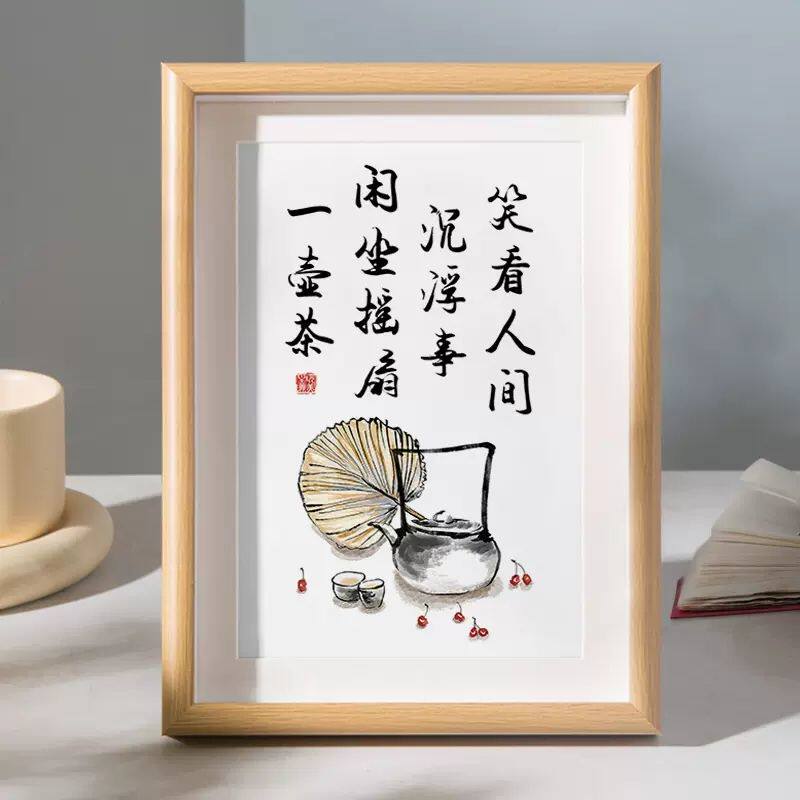 笑看人间
沉浮事
闲坐摇扇
一壶茶